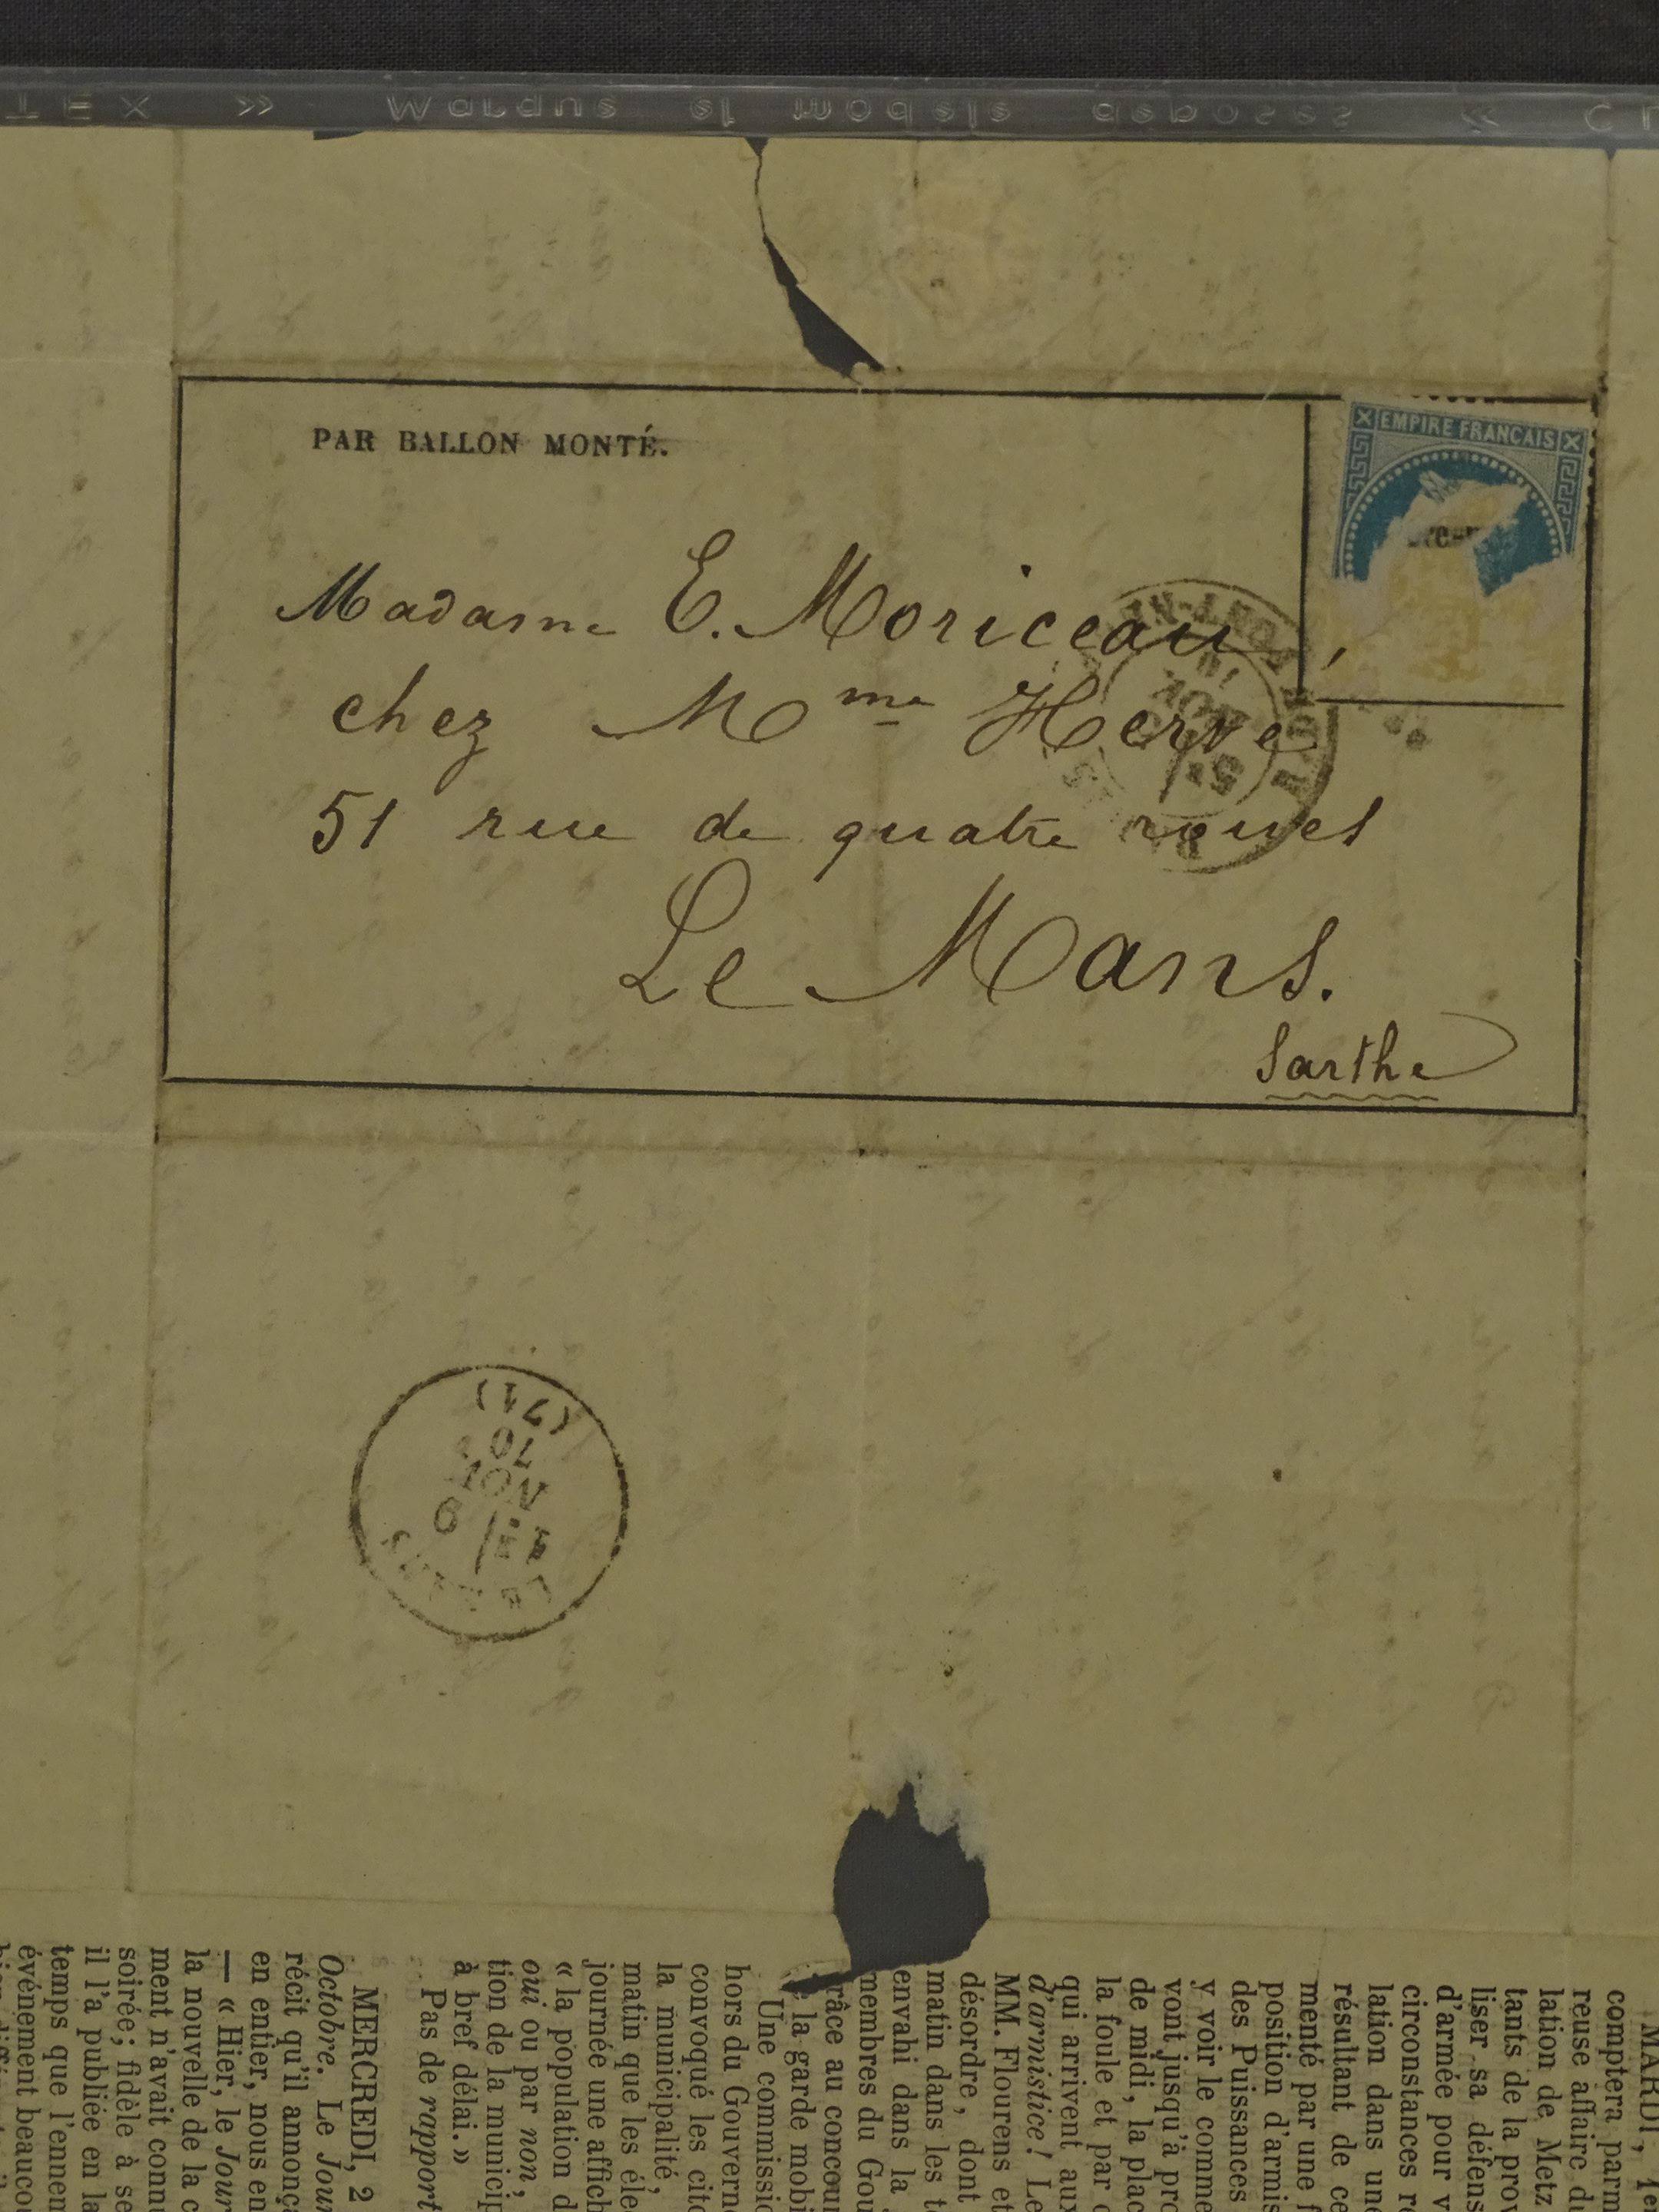 PAR BALLON MONTÉ.
EMPIRE FRANÇAIS
Madame E. Moriceau,
chez Mme Herve
51 rue de quatre roues
Le Mans.
Sarthe
(71)
70
NOV.
6
MARDI, 1er
comptera parm
reuse affaire d
lation de Metz
tants de la prov
liser sa défens
d'armée pour v
circonstances re
lation dans une
résultant de ce
menté par une f
position d'armis
des Puissances
y voir le comme
vont jusqu'à pro
de midi, la plac
la foule et par c
qui arrivent aux
d'armistice! Le
MM. Flourens et
désordre, dont
matin dans les t
envahi dans la
membres du Gou
râce au concour
la garde mobi
Une commissio
hors du Gouverne
convoqué les cito
la municipalité,
matin que les éle
journée une affich
« la population d
oui ou par non,
tion de la municip
à bref délai. »
Pas de rapport
MERCREDI, 2
Octobre. Le Jour
récit qu'il annonç
en entier, nous en
— « Hier, le Jour
la nouvelle de la c
ment n'avait connu
soirée; fidèle à se
il l'a publiée en la
temps que l'ennem
événement beaucou